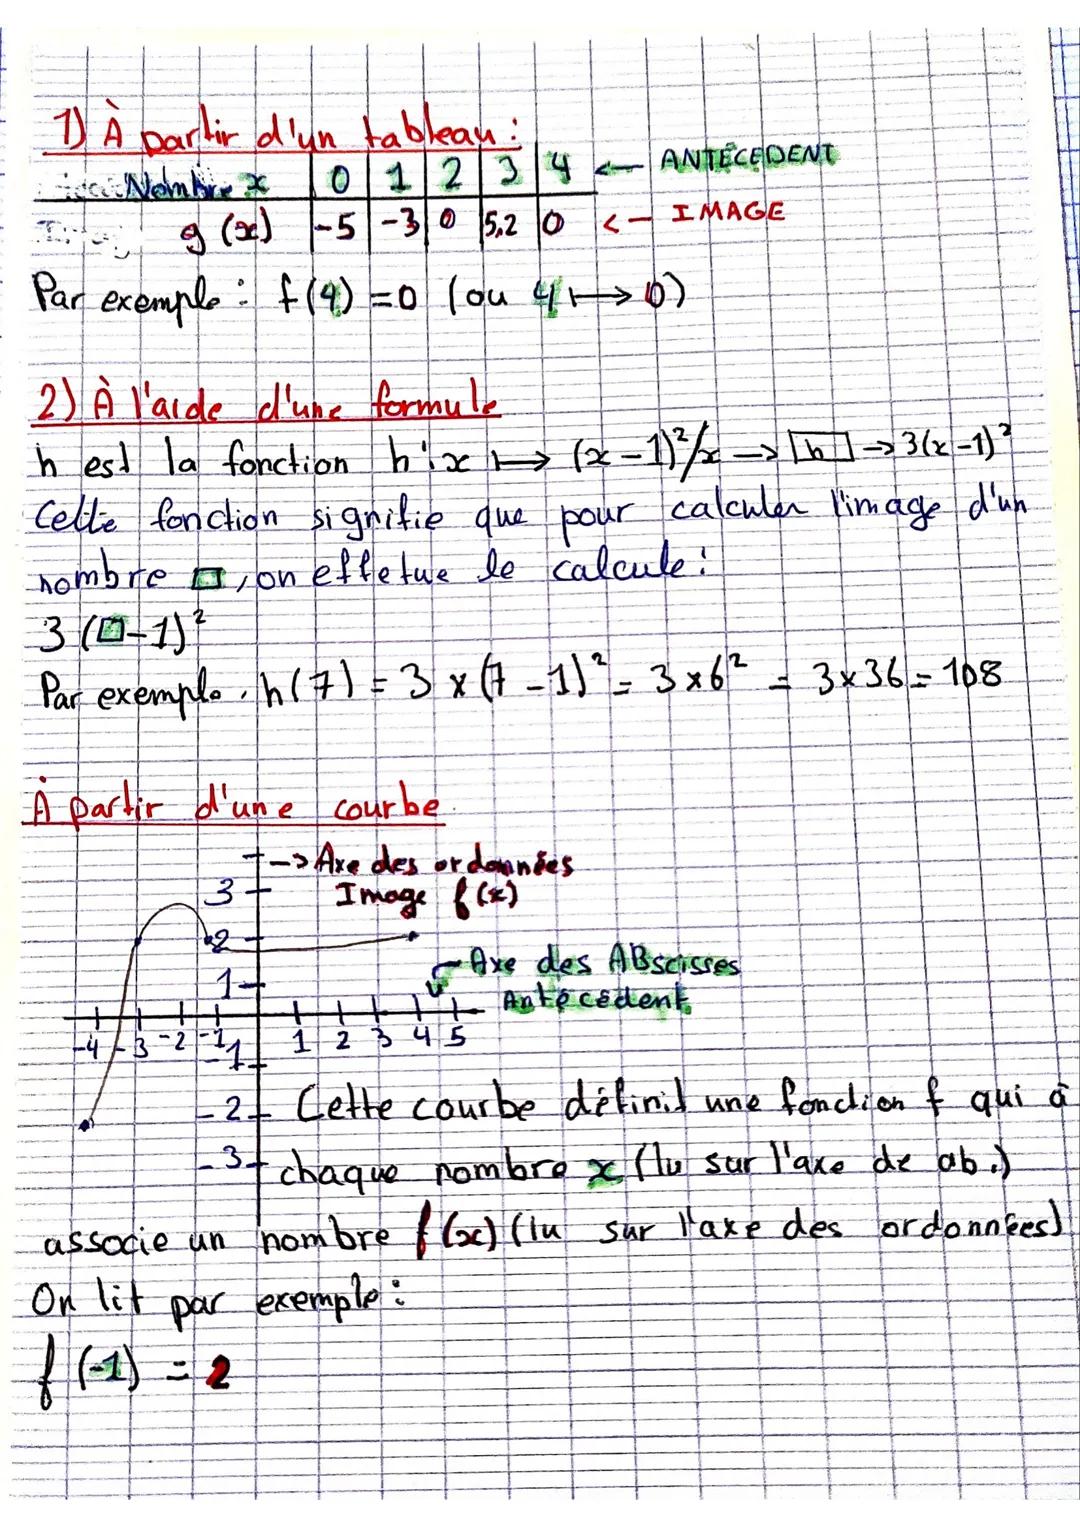 1) À partir d'un tableau :
Nombre x 0 1 2 3 4 <— ANTÉCÉDENT
g (x) -5 -3 0 5,2 0 <— IMAGE
Par exemple : f(4) = 0 (ou 4 ↦ 0)
2) À l'aide d'une formule
h est la fonction h : x ↦ (x-1)²/x → h → 3(x-1)²
Cette fonction signifie que pour calculer l'image d'un
nombre □, on effetue le calcule :
3 (□-1)²
Par exemple. h(7) = 3 × (7-1)² = 3×6² = 3×36 = 108
À partir d'une courbe
-> Axe des ordonnées
3 Image f(x)
2
Axe des ABscisses
1
Antécédent
-4 -3 -2 -1 1 2 3 4 5
-1
-2 Cette courbe définit une fonction f qui à
-3 chaque nombre x (lu sur l'axe de ab.)
associe un nombre f(x) (lu sur l'axe des ordonnées)
On lit par exemple :
f (-1) = 2